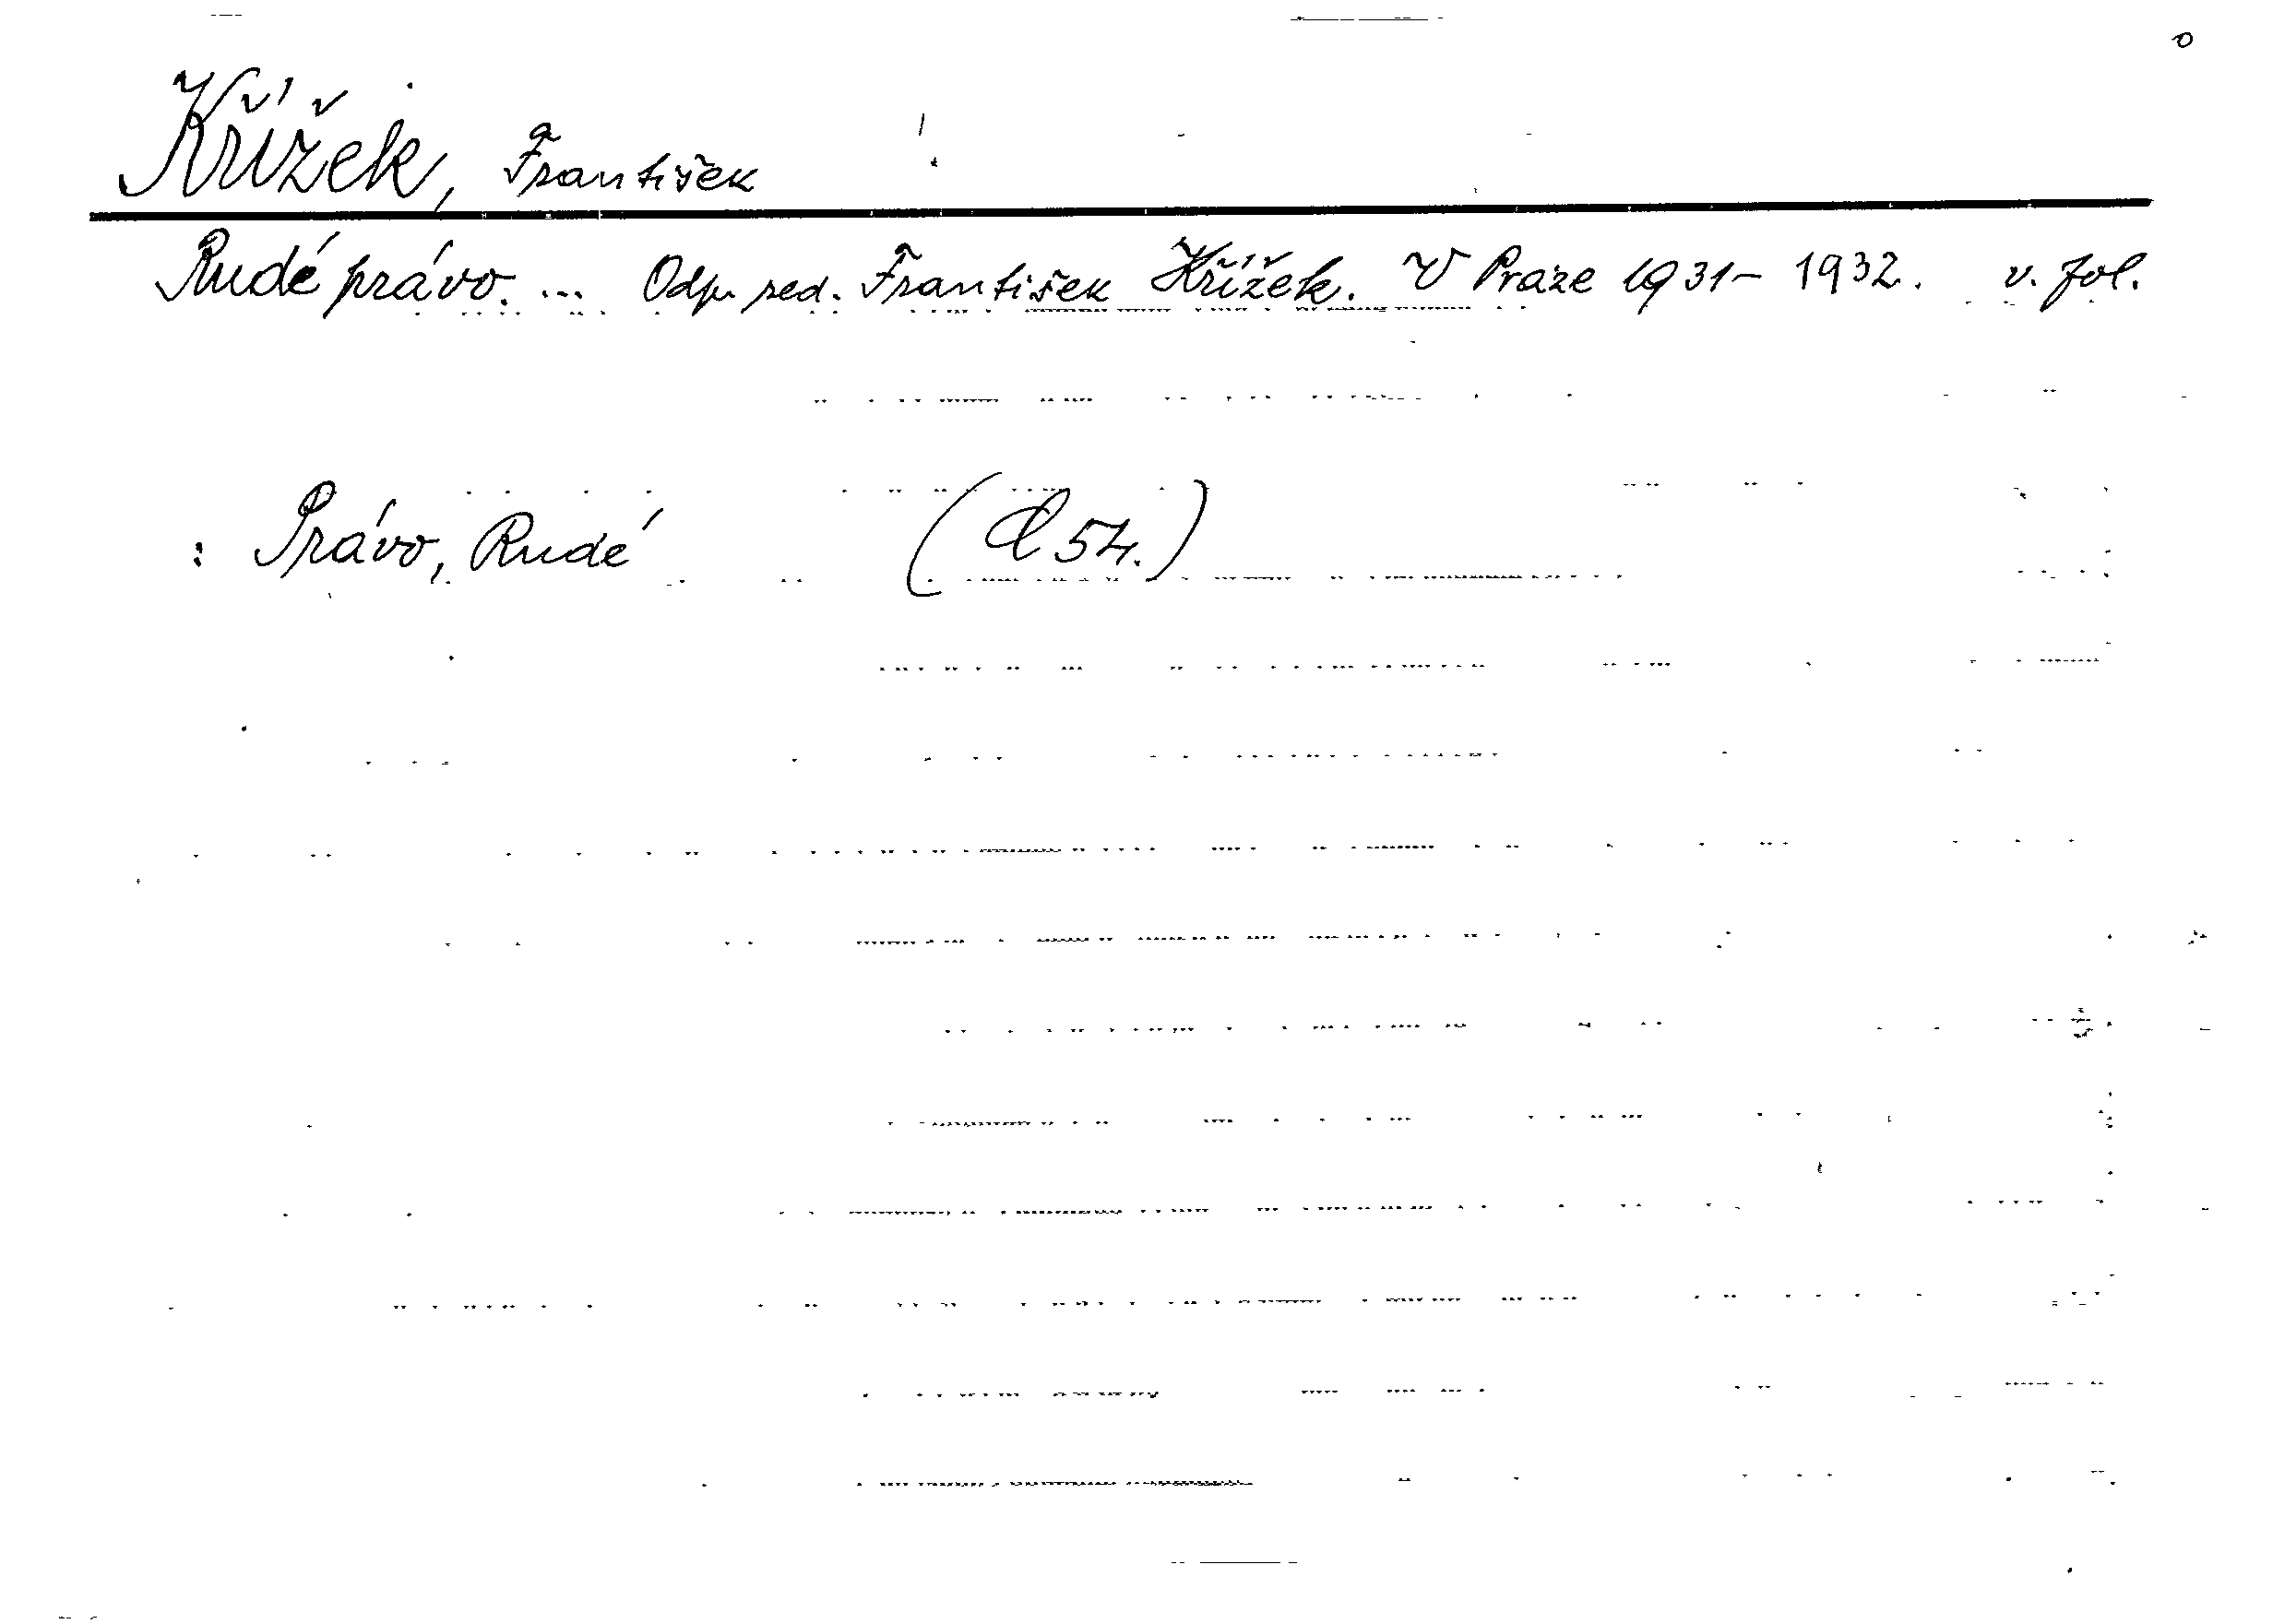 Křížek, František
Rudé právo. ... Odp. red. František Křížek. V Praze 1931- 1932. v. fol.
: Právo, Rudé (d 54.)